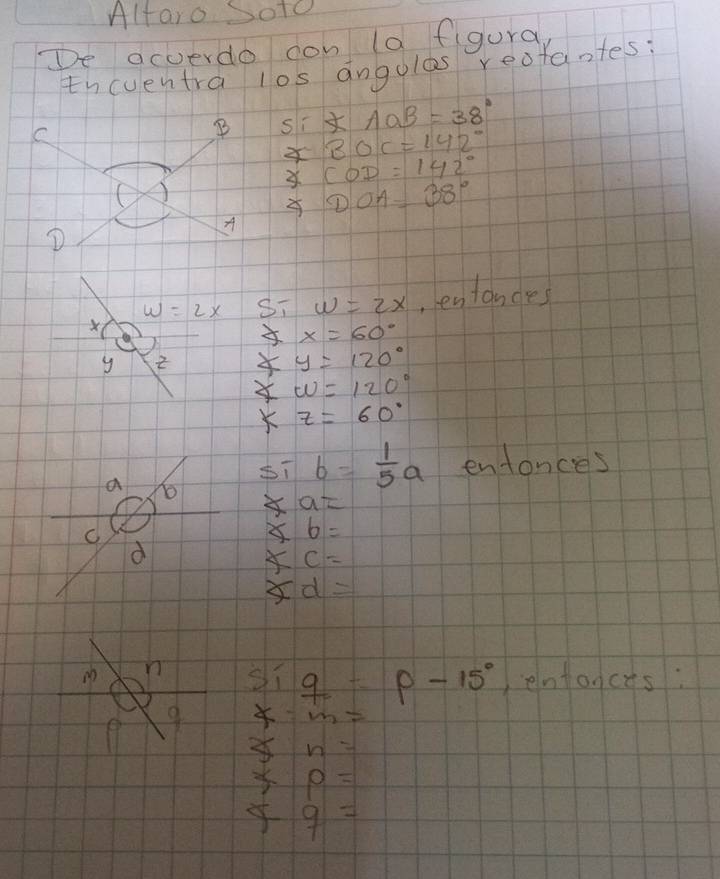 Alfaro Soto
De acuerdo con la figura,
Encuentra los ángulos restantes:
C
B
D
A
Si ∡ AOB = 38°
∡ BOC = 142°
∡ COD = 142°
∡ DOA = 38°
w = 2x
x
y
z
Si w = 2x, entonces
∡ x = 60°
∡ y = 120°
∡ w = 120°
∡ z = 60°
a
b
c
d
si b = 1/5 a entonces
∡ a =
∡ b =
∡ c =
∡ d =
m
n
p
q
Si q = p - 15°, entonces:
∡ m =
∡ n =
∡ p =
∡ q =